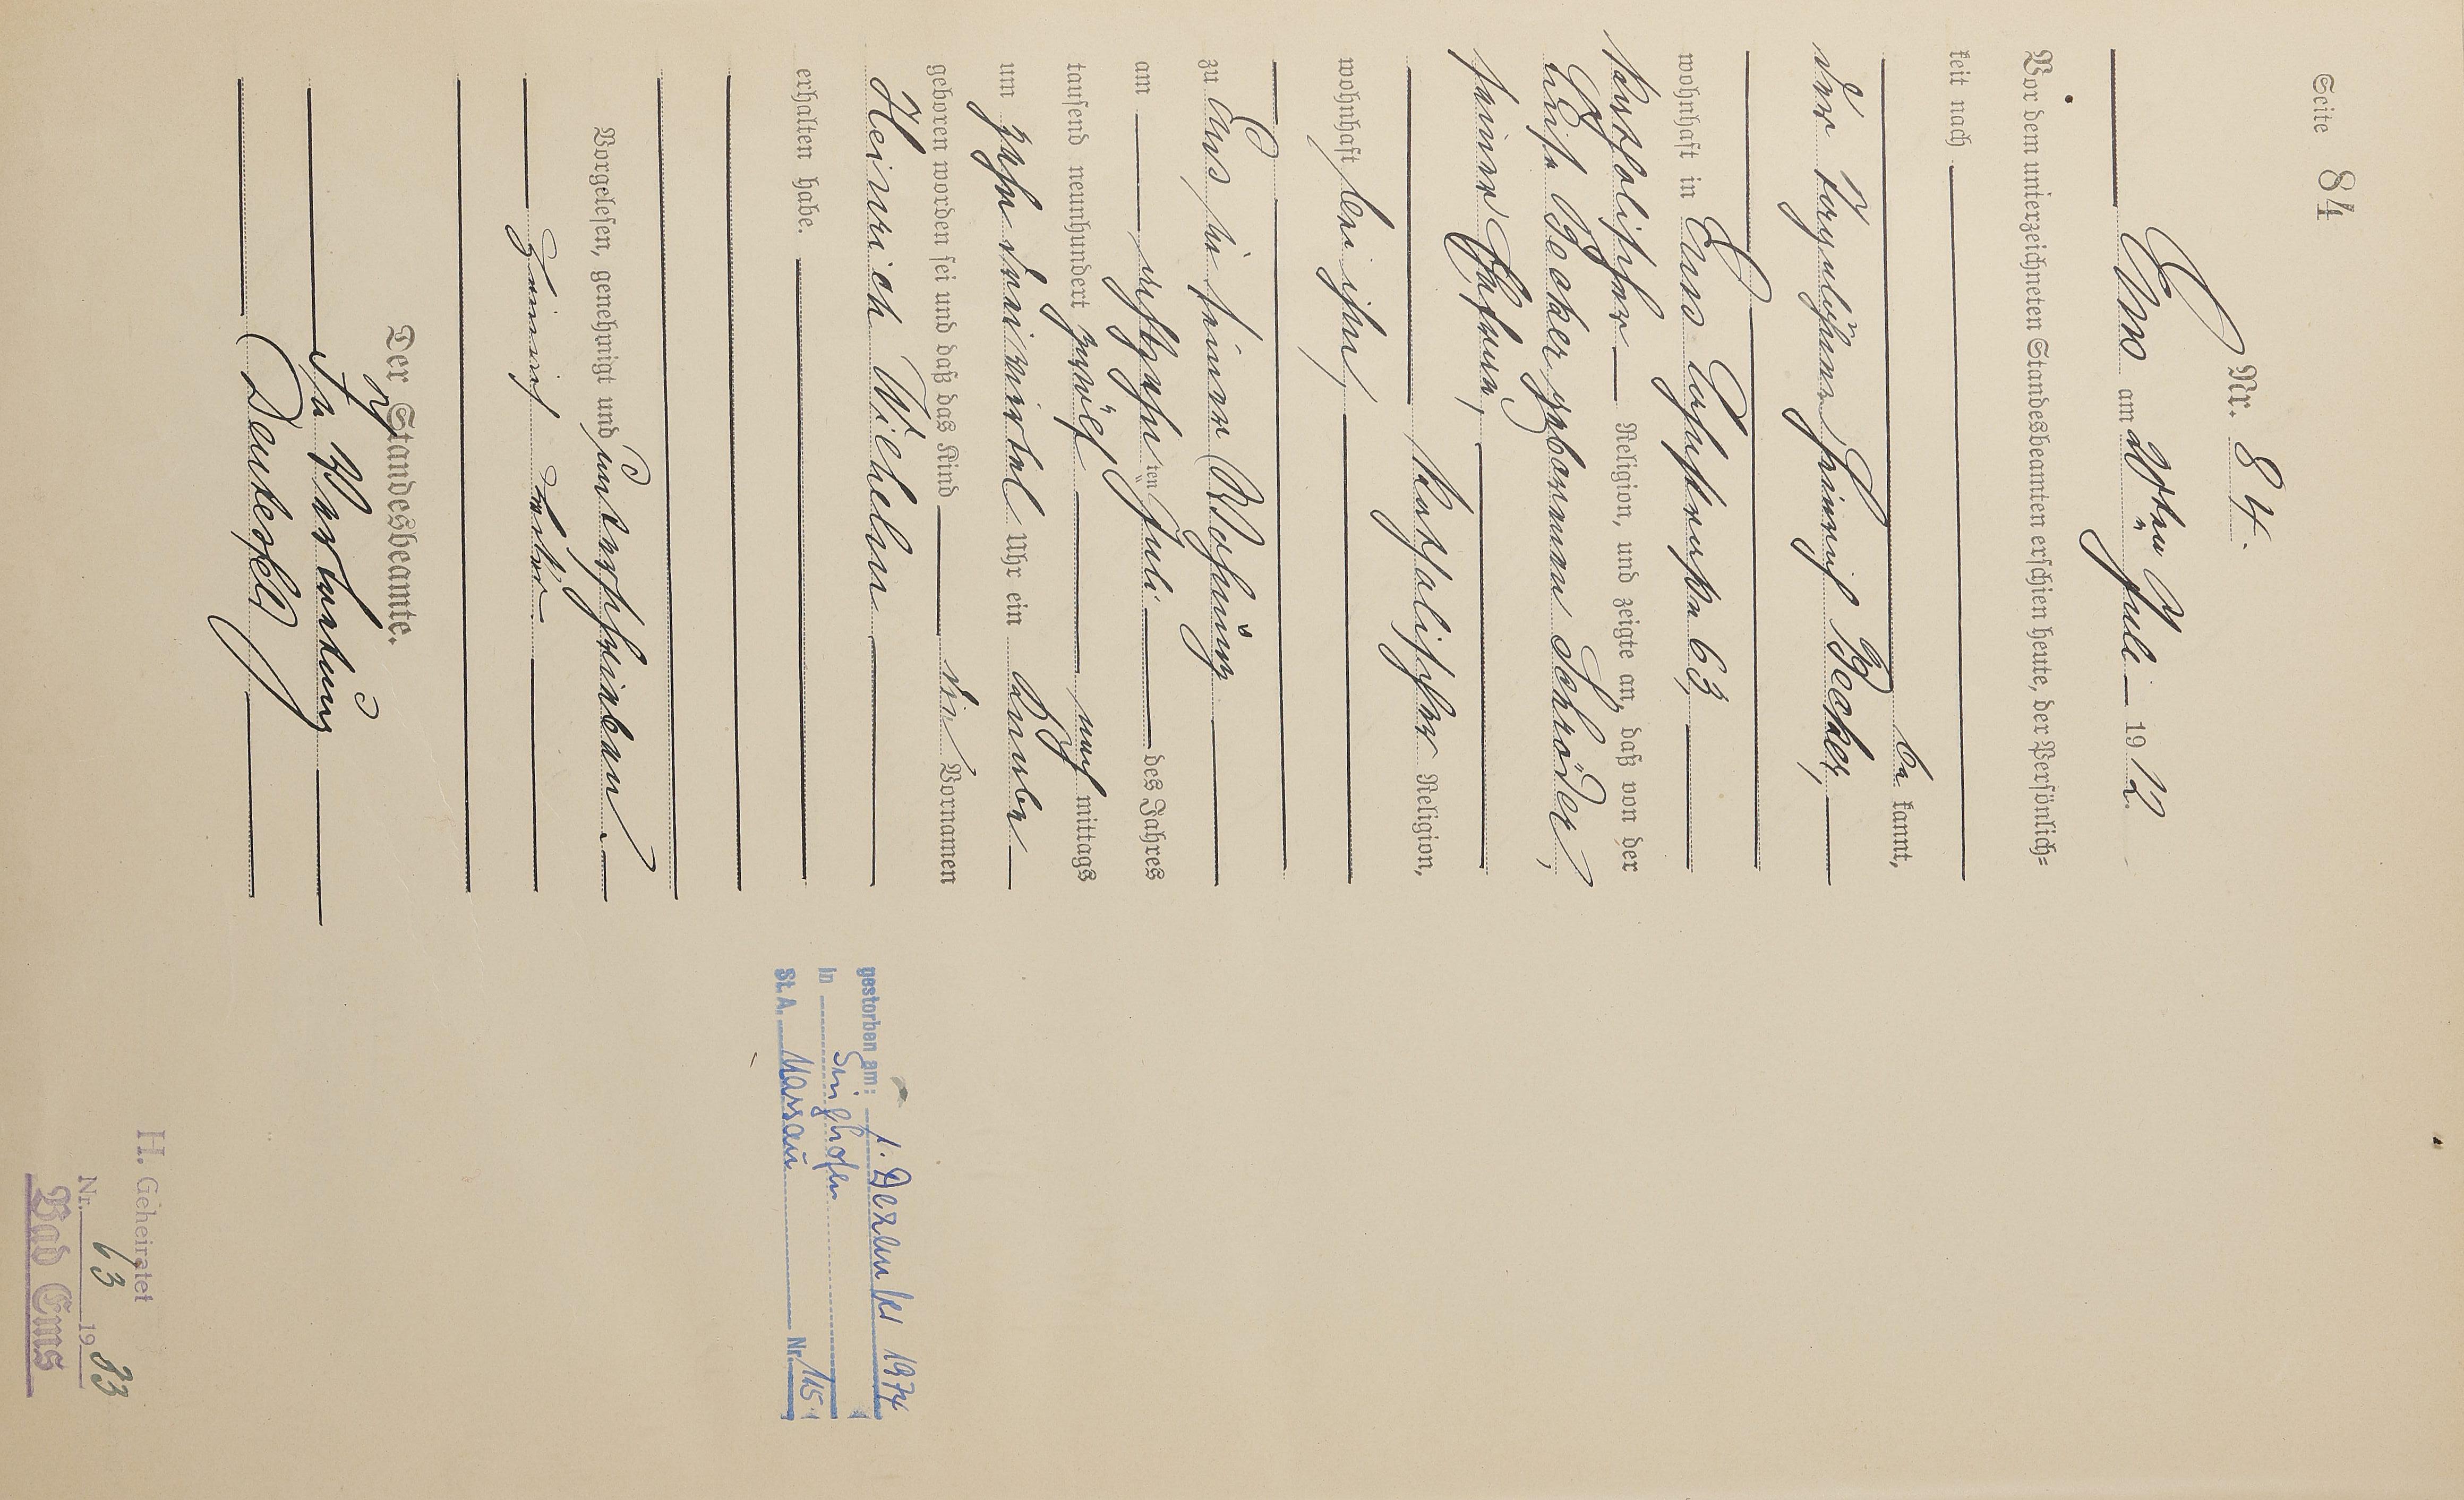 Seite 84
Nr. 84.
Ems am 20ten Juli 1912.
Vor dem unterzeichneten Standesbeamten erschien heute, der Persönlich-
keit nach
be kannt,
der Taglöhner Heinrich Becker,
wohnhaft in Ems Lahnstraße 63,
katholischer Religion, und zeigte an, daß von der
Luise Becker geborenen Schröder,
seiner Ehefrau,
katholischer Religion,
wohnhaft bei ihm,
zu Ems in seiner Wohnung
am achtzehn ten Juli des Jahres
tausend neunhundert zwölf nach mittags
um zehn dreiviertel Uhr ein Knabe
geboren worden sei und daß das Kind die Vornamen
Heinrich Wilhelm
erhalten habe.
Vorgelesen, genehmigt und unterschrieben.
Heinrich Becker.
Der Standesbeamte.
In Vertretung
gestorben am: 1. Dezember 1974
in Singhofen
St. A. Nassau Nr. 115
H. Geheiratet
Nr. 63 1933
Bad Ems